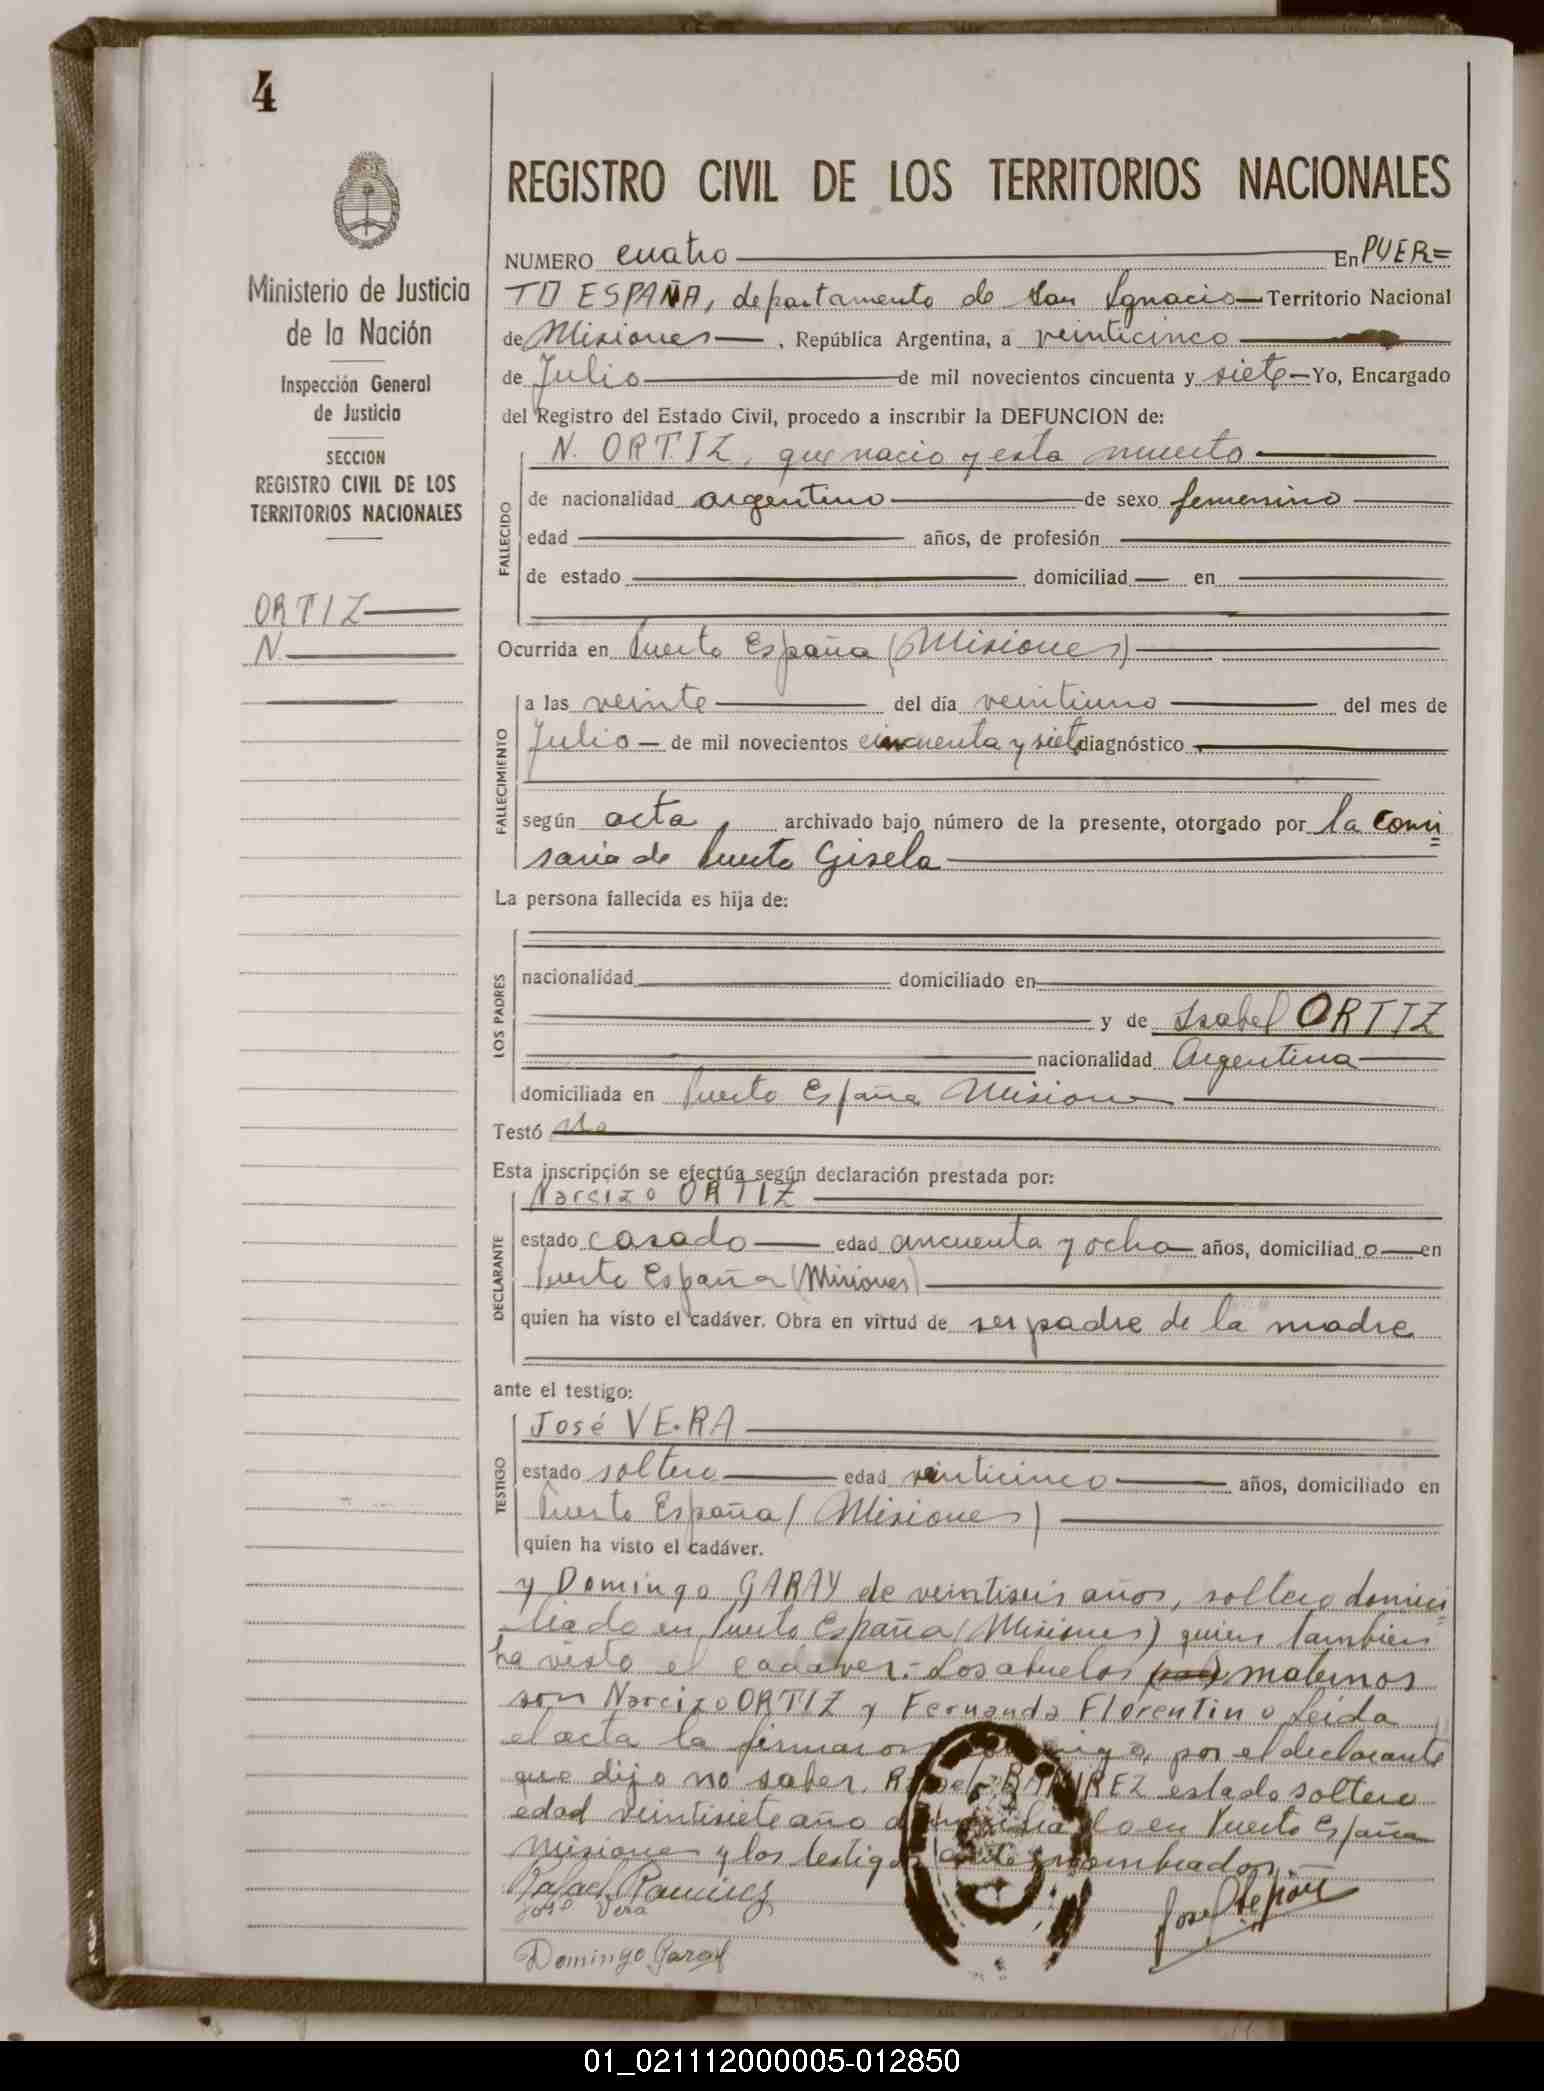 4
REGISTRO CIVIL DE LOS TERRITORIOS NACIONALES
Ministerio de Justicia
de la Nación
Inspección General
de Justicia
SECCION
REGISTRO CIVIL DE LOS
TERRITORIOS NACIONALES
ORTIZ
N.
NUMERO cuatro En PUER=
TO ESPAÑA, departamento de San Ignacio Territorio Nacional
de Misiones, República Argentina, a veinticinco
de Julio de mil novecientos cincuenta y siete Yo, Encargado
del Registro del Estado Civil, procedo a inscribir la DEFUNCION de:
N. ORTIZ, que nacio y esta muerto
FALLECIDO
de nacionalidad argentino de sexo femenino
edad años, de profesión
de estado domiciliad en
Ocurrida en Puerto España (Misiones)
FALLECIMIENTO
a las veinte del día veintiuno del mes de
Julio de mil novecientos cincuenta y siete diagnóstico
según acta, archivado bajo número de la presente, otorgado por la comi=
saria de Puerto Gisela
La persona fallecida es hija de:
LOS PADRES
nacionalidad domiciliado en
y de Isabel ORTIZ
nacionalidad Argentina
domiciliada en Puerto España Misiones
Testó No
Esta inscripción se efectúa según declaración prestada por:
Narcizo ORTIZ
DECLARANTE
estado casado edad cincuenta y ocho años, domiciliad o en
Puerto España (Misiones)
quien ha visto el cadáver. Obra en virtud de ser padre de la madre
ante el testigo:
José VERA
TESTIGO
estado soltero edad veinticinco años, domiciliado en
Puerto España (Misiones)
quien ha visto el cadáver.
y Domingo GARAY de veintiseis años, soltero domici=
liado en Puerto España (Misiones) quien tambien
ha visto el cadaver.- Los abuelos maternos
son Narcizo ORTIZ y Fernanda Florentino Leida
el acta la firmaron conmigo, por el declarante
que dijo no saber, Rafael RAMIREZ estado soltero
edad veintisiete año domiciliado en Puerto España
Misiones y los testigos ante nombrados.-
Rafael Ramirez
José Vera
Domingo Garay
01_021112000005-012850